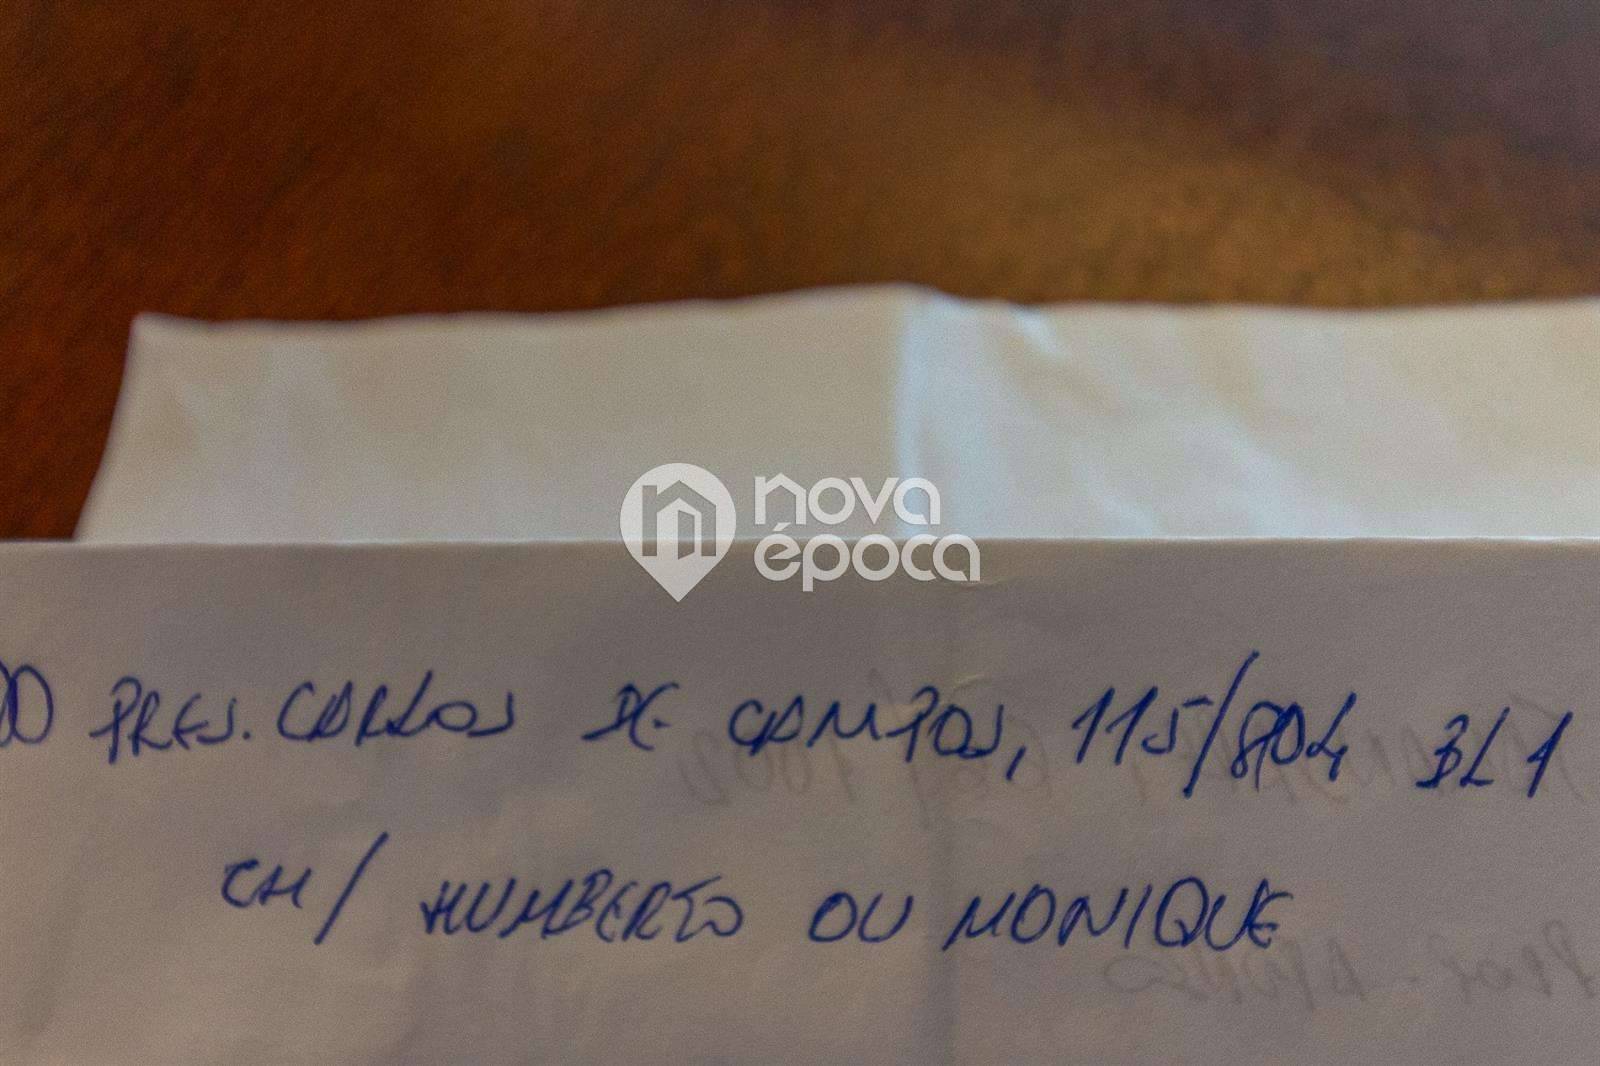 nova
época
PRES. CARLOS DE CAMPOS, 115/804 BL1
CH/ HUMBERTO OU MONIQUE